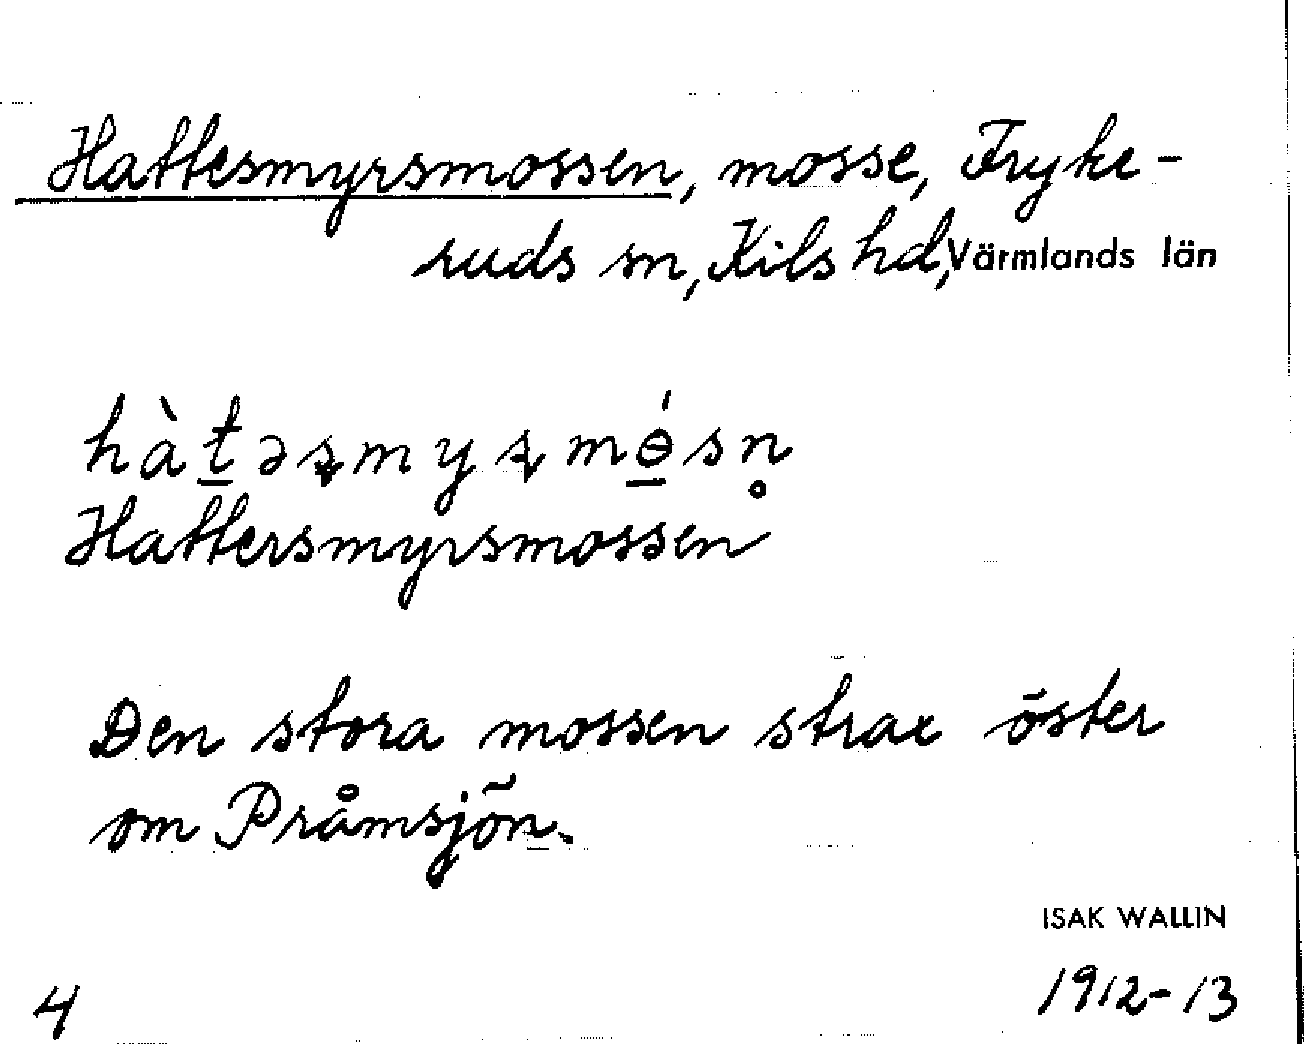 Hattesmyrsmossen, mosse, Fryke-
ruds sn, Kils hd, Värmlands län
hàt̲əʂmyʂmɵ̲́sn̥
Hattersmyrsmossen
Den stora mossen strax öster
om Pråmsjön.
ISAK WALLIN
1912-13
4